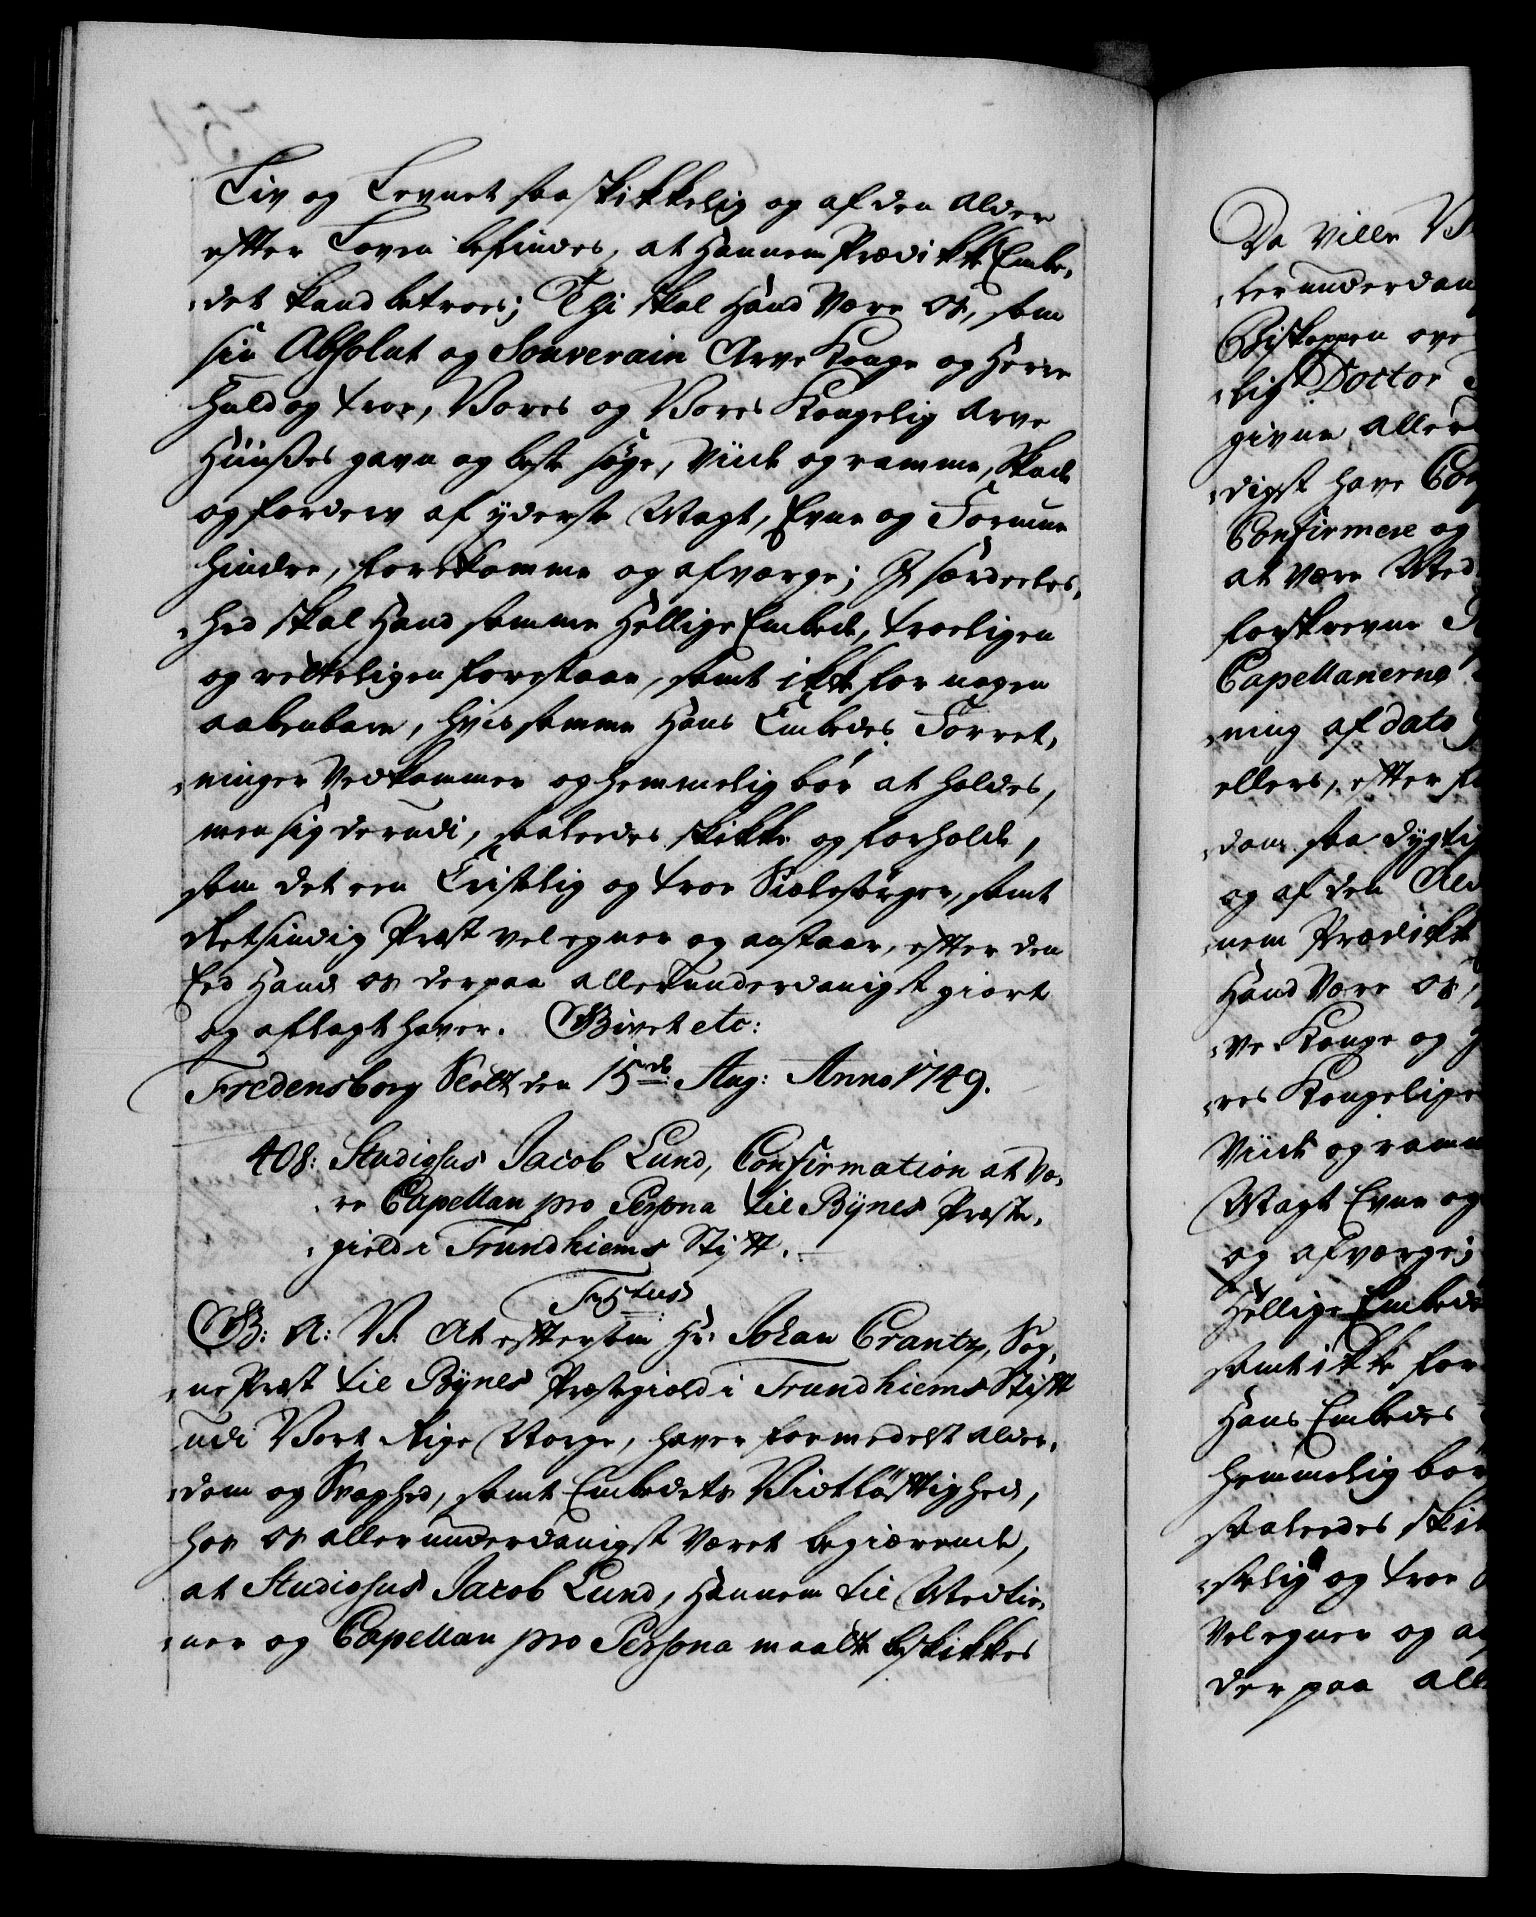 Liv og Levnet saa skikkelig og af den Alder
efter Loven befindes, at Hannem Prædikke Embe-
det kand betroes; Thi skal Hand Være Os, som
sin Absolut og Souverain Arve Konge og Herre
Huld og troe, Vores og Vores Kongelig Arve
Huußes gavn og beste søge, Viide og ramme, Skade
og fordærv af yderste Magt, Evne og Formue
hindre, forekomme og afværge; I særdeeles-
hed skal Hand samme Hellige Embede, troeligen
og retteligen forestaae, samt ikke for nogen
aabenbare, hvis samme Hans Embedes Forret-
ninger Vedkommer og hemmelig bør at holdes,
men sig derudi, saaledes skikke og forholde,
som det een Christelig og troe Siælesørger, samt
Retsindig Præst vel egner og anstaar, efter den
Eed Hand Os derpaa allerunderdanigst giort
og aflagt haver. Givet etc:
Fredensborg Slott den 15de Aug: Anno 1749.
408: Studiosus Jacob Lund, Confirmation at Væ-
re Capellan pro Persona til Bÿnes Præste-
gield i Trundhiems Stift.
F: 5tus
G: A: V: At eftersom Hr: Johan Crantz, Sog-
ne Præst til Bÿnes Præstegield i Trundhiems Stift
udi Vort Rige Norge, haver formedelst Alder-
dom og Svaghed, samt Embedets Vidtløftighed,
hos Os allerunderdanigst Været begiærende,
at Studiosus Jacob Lund, Hannem til Medtie-
ner og Capellan pro Persona maatte beskikkes
Da Ville V
lerunderdan
Biskoppen ove
lig Doctor
givne aller
digst have Co
Confirmere og
at Være Med
forskrevne
Capellanerne
ning af dato
ellers, efter
dom saa dygtig
og af den Ald
nem Prædikke
Hand Være Os,
ve Konge og
res Kongelige
Viide og ramm
Magt Evne og
og afværge;
Hellige Embede
samt ikke for
Hans Embedes
hemmelig bør
saaledes skik
stelig og troe
Vel egner og a
derpaa all